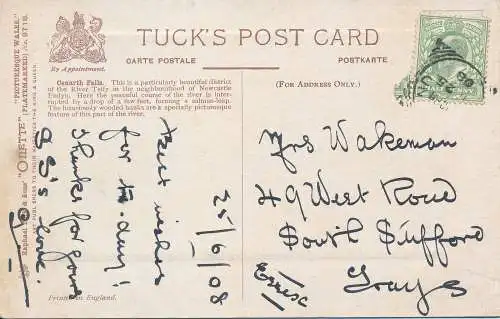 TUCK'S POST CARD
CARTE POSTALE
POSTKARTE
By Appointment.
(FOR ADDRESS ONLY.)
Cenarth Falls. This is a particularly beautiful district
of the River Teify in the neighbourhood of Newcastle
Emlyn. Here the peaceful course of the river is inter-
rupted by a drop of a few feet, forming a salmon-leap.
The luxuriously wooded banks are a specially picturesque
feature of this part of the river.
Raphael Tuck & Sons' "OILETTE" "PICTURESQUE WALES."
[PLATEMARKED]
ART PUBLISHERS TO THEIR MAJESTIES THE KING & QUEEN.
25/6/08
Best wishes
for to-day!
Thanks for
love.
Mrs Wakeman
49 West Road
South
Grays
Essex
Printed in England.